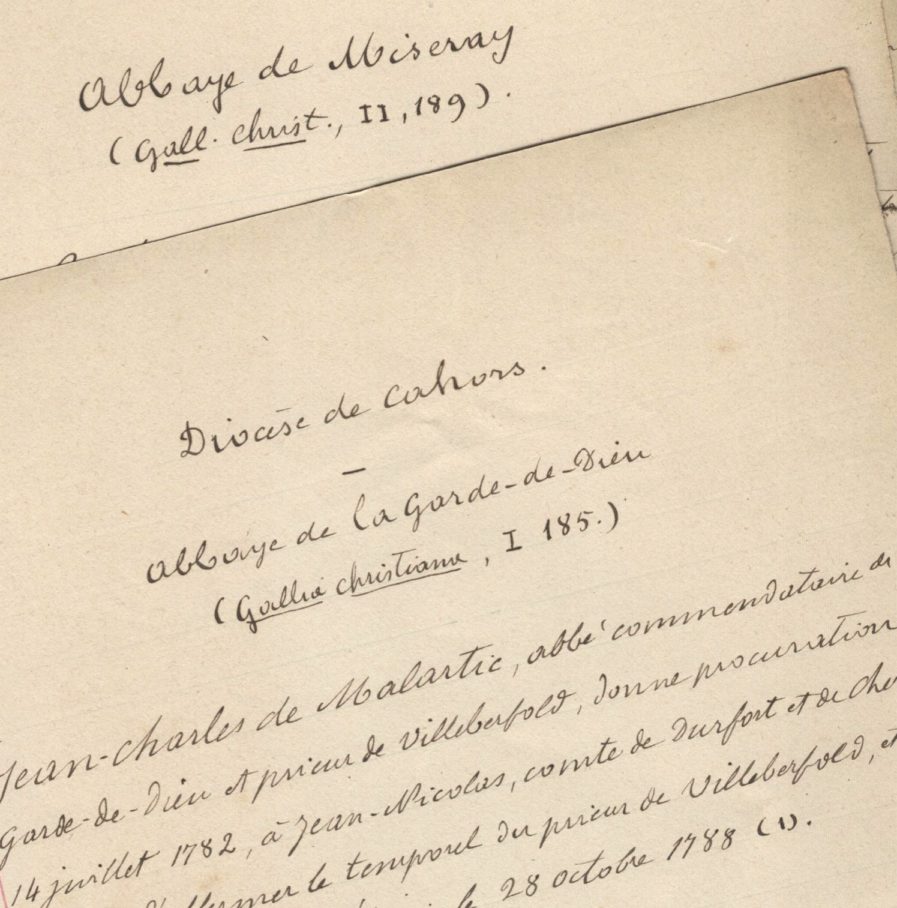 Abbaye de Miseray
(Gall. Christ., II, 189).
Diocèse de Cahors.
—
Abbaye de la Garde-de-Dieu
(Gallia christiana, I 185.)
Jean-Charles de Malartic, abbé commendataire de
Garde-de-Dieu et prieur de Villeberfold, donne procuration
14 juillet 1782, à Jean-Nicolas, comte de Durfort et de Che
le temporel du prieur de Villeberfold, et
le 28 octobre 1788 (1).